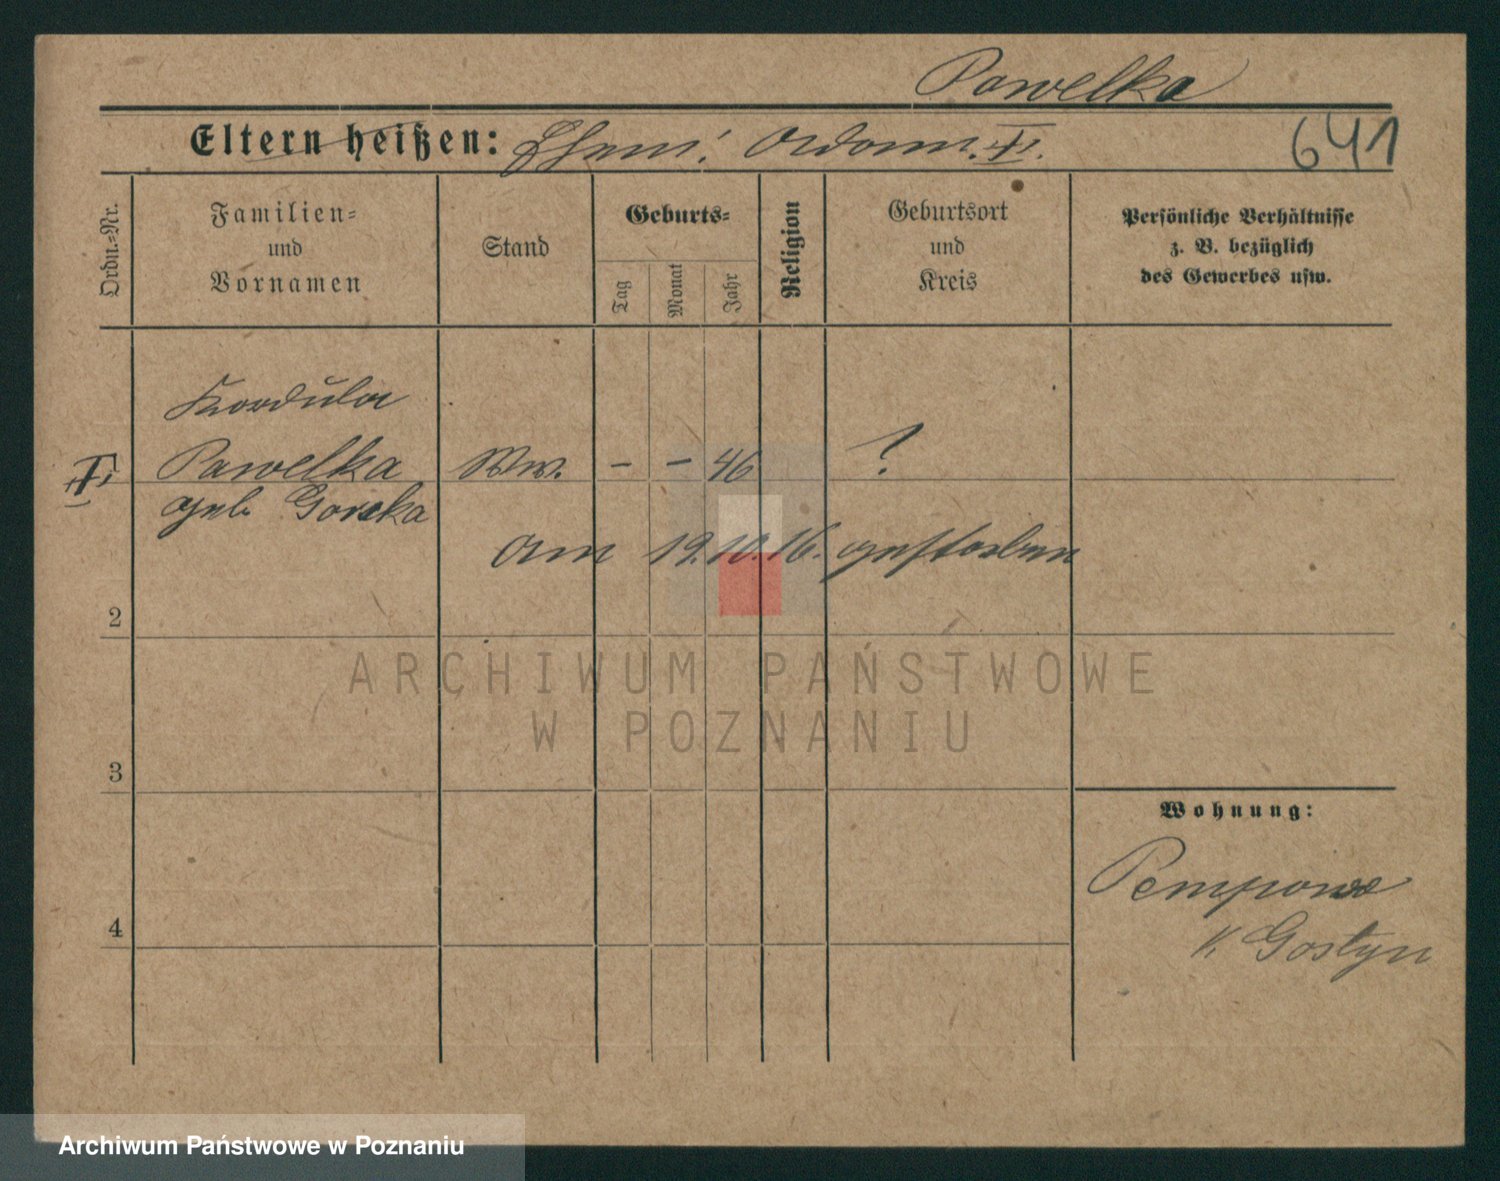 Pawelka
Eltern heißen: Ehem: Adam †.
641
Ordn.=Nr.
Familien=
und
Vornamen
Stand
Geburts=
Tag
Monat
Jahr
Religion
Geburtsort
und
Kreis
Persönliche Verhältnisse
z. B. bezüglich
des Gewerbes usw.
Kordula
Pawelka Ww. – – 46 ?
geb. Gorcka
am 19.10.16. gestorben
2
3
4
ARCHIWUM PAŃSTWOWE
W POZNANIU
Wohnung:
Pempowo
K Gostyn
Archiwum Państwowe w Poznaniu